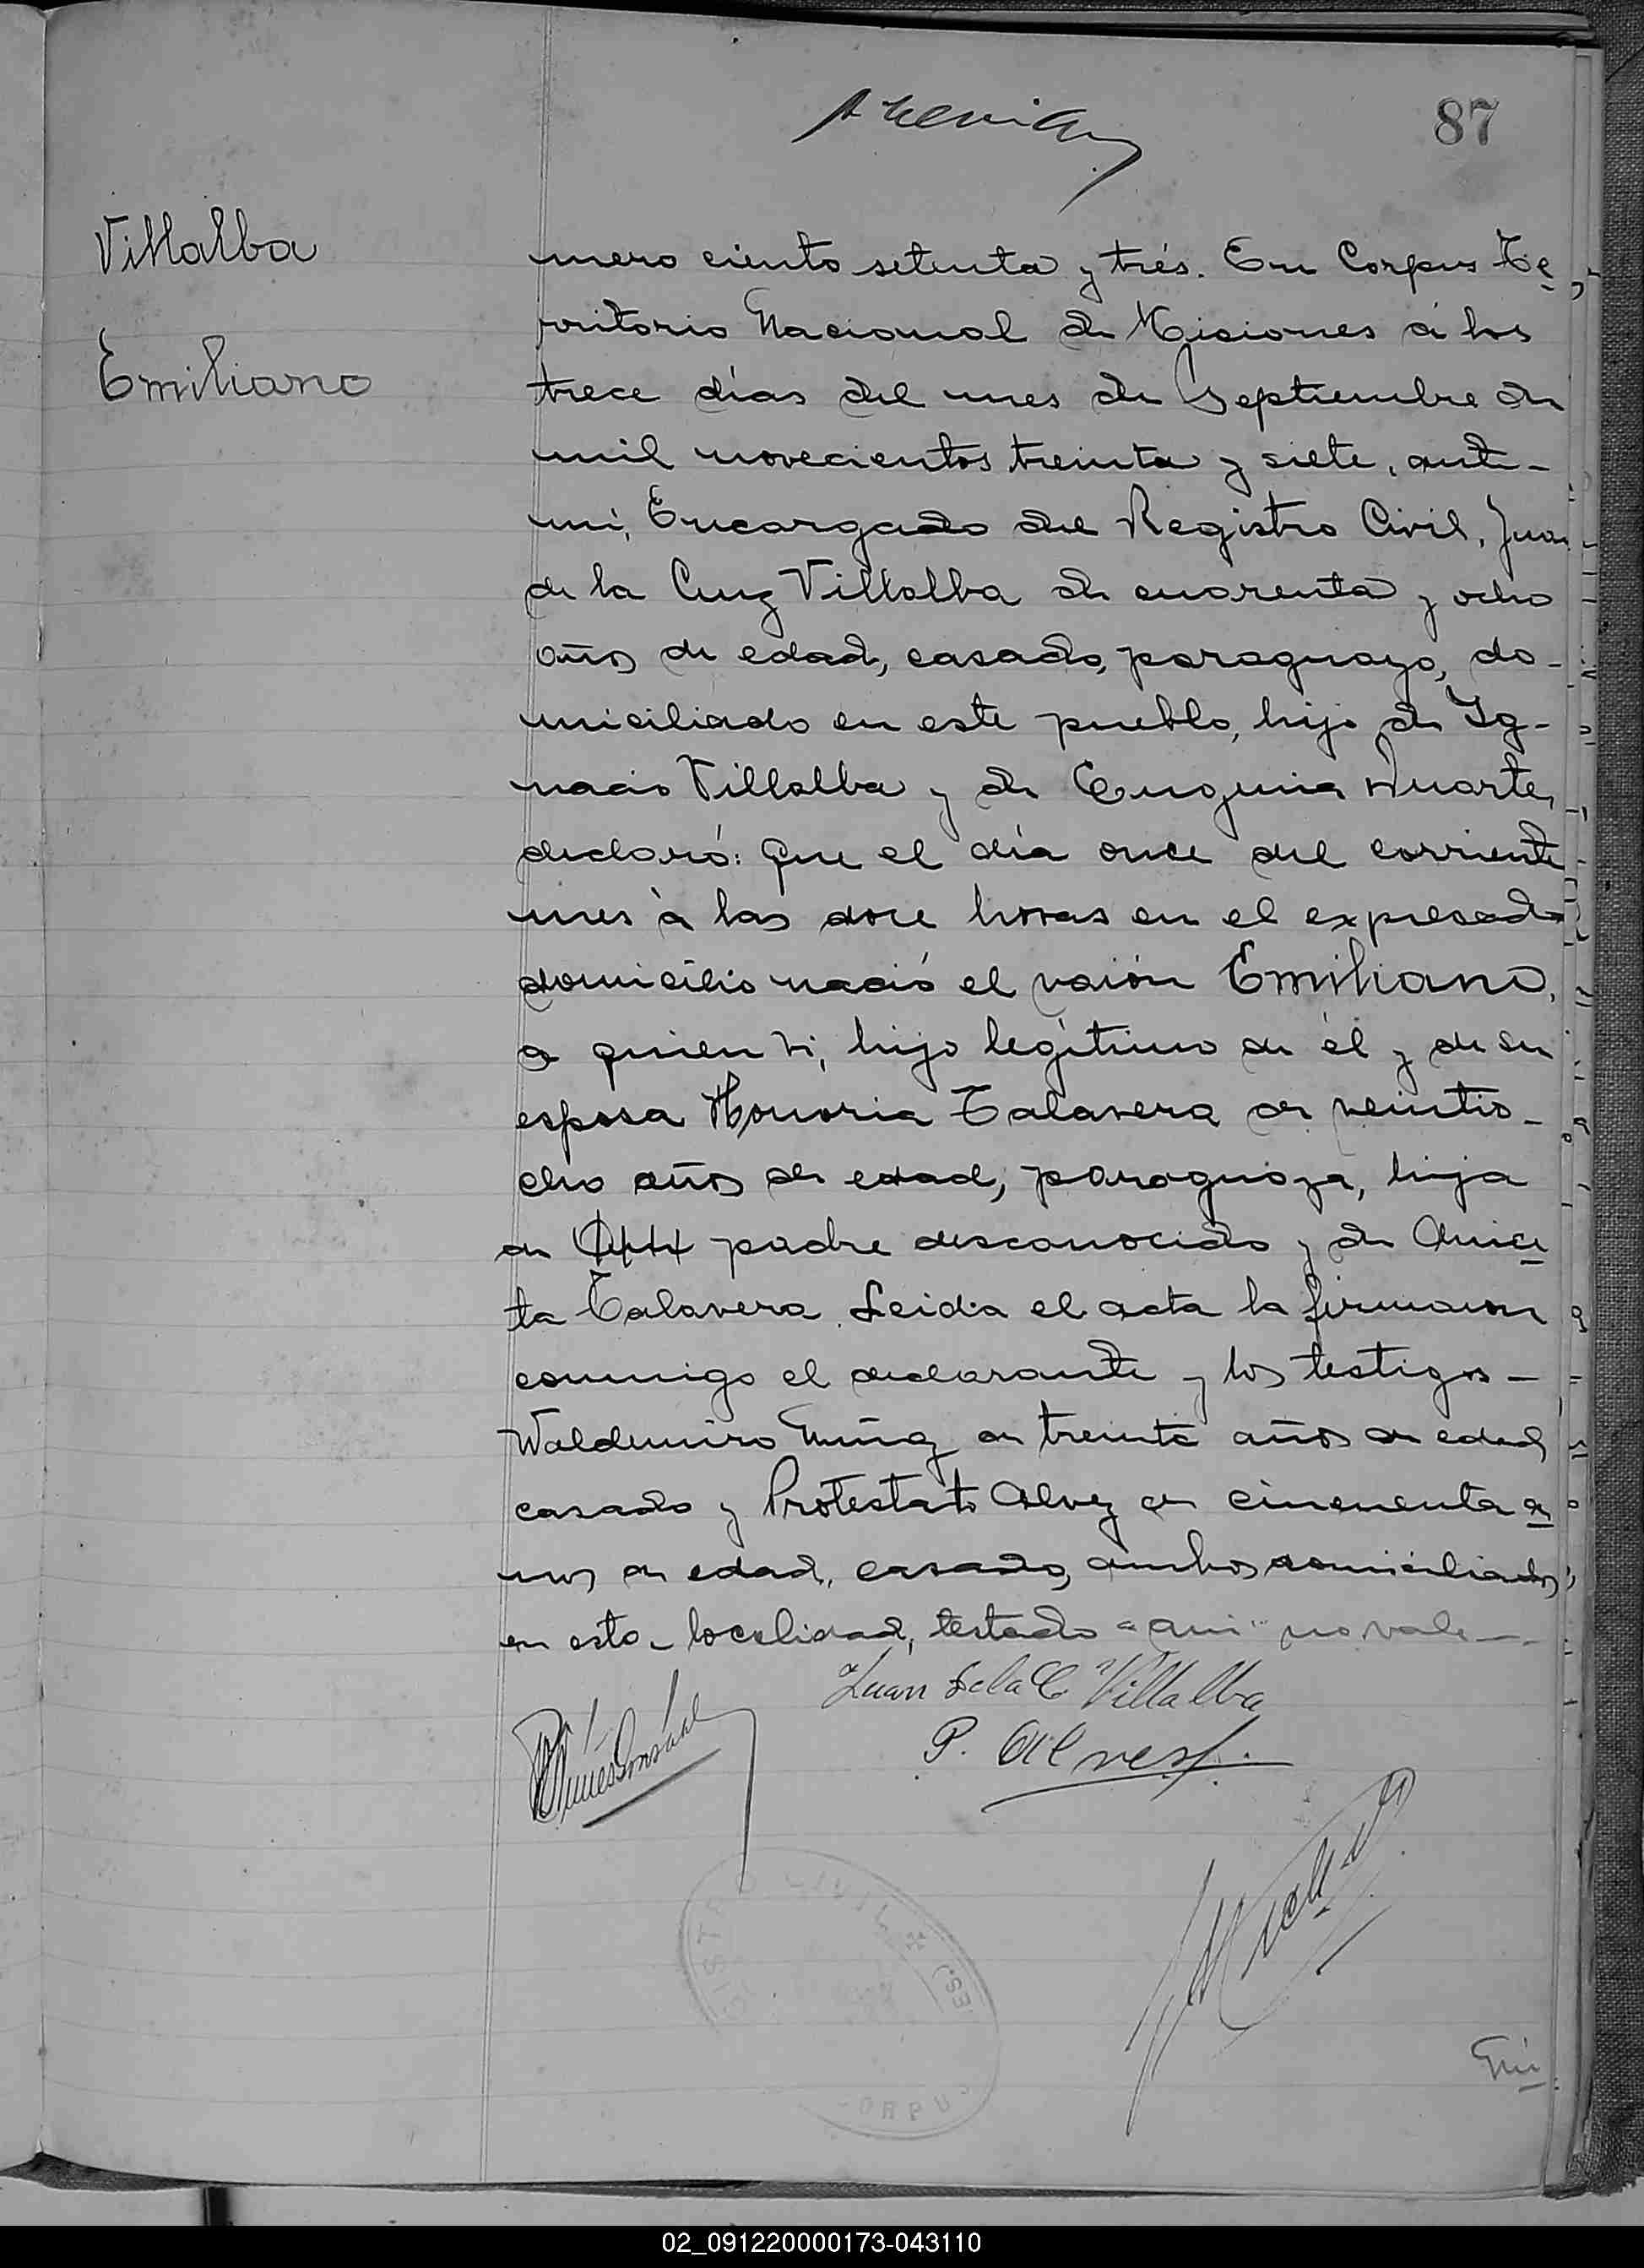 87
Villalba
Emiliano
mero ciento setenta y trés. En Corpus Te
rritorio Nacional de Misiones á los
trece días del mes de Septiembre de
mil novecientos treinta y siete, ante-
mí, Encargado del Registro Civil, Juan
de la Cruz Villalba de cuarenta y ocho
años de edad, casado, paraguayo, do-
miciliado en este pueblo, hijo de Ig-
nacio Villalba y de Eugenia Duarte,
declaró: Que el día once del corriente
mes à las doce horas en el expresado
domicilio nació el varón Emiliano,
a quien vi, hijo legítimo de él y de su
esposa Honoria Talavera de veintio-
cho años de edad, paraguaya, hija
de padre desconocido y de Anice
ta Talavera. Leida el acta la firmaron
conmigo el declarante y los testigos-
Waldemiro Muñoz de treinta años de edad
casado y Protestato Alvez de cincuenta a
ños de edad, casado, ambos domiciliados
en esta localidad, testado "Ani" no vale-.
Juan de la C Villalba
P. Alvesz.
ISTR CIVIL ✠ (ES.)
ORPU
02_091220000173-043110